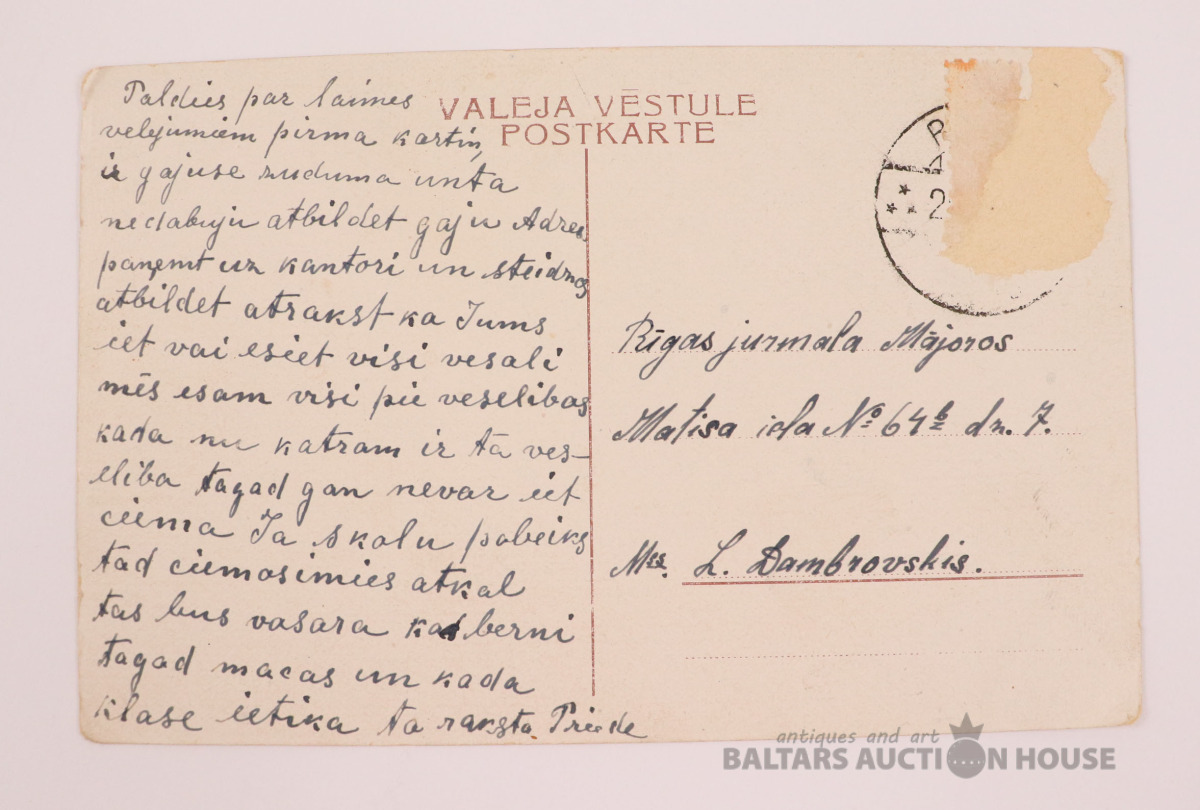 Paldies par laimes
velejumiem pirma kartin,
ir gajuse zuduma unta
nedabuju atbildet gaju Adres
paņemt uz kantori un steidzos
atbildet atrakst ka Jums
iet vai esiet visi vesali
mēs esam visi pie veselibas
kada nu katram ir ta ves-
eliba tagad gan nevar iet
ciema Ja skolu pabeiks
tad ciemosimies atkal
tas bus vasara kad berni
tagad macas un kada
klase ietika ta raksta Priede
VALEJA VĒSTULE
POSTKARTE
Rīgas jurmala Mājoros
Matisa iela No 64b dz. 7.
L. Dambrovskis.
antiques and art
BALTARS AUCTION HOUSE